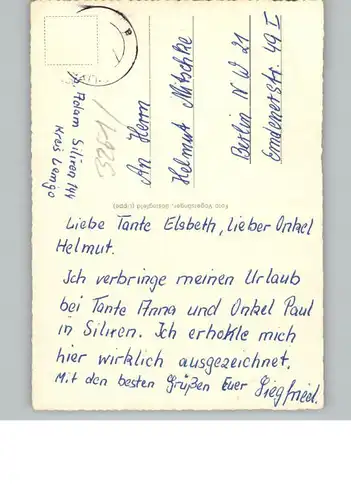 An Herrn
Helmut Mitschke
Berlin NW 21
Emdenerstr. 49 I
Kreis Lemgo
Foto Vogelsänger, Bösingfeld (Lippe)
Liebe Tante Elsbeth, lieber Onkel
Helmut.
Ich verbringe meinen Urlaub
bei Tante Anna und Onkel Paul
in Silixen. Ich erhohle mich
hier wirklich ausgezeichnet.
Mit den besten Grüßen Euer Siegfried.